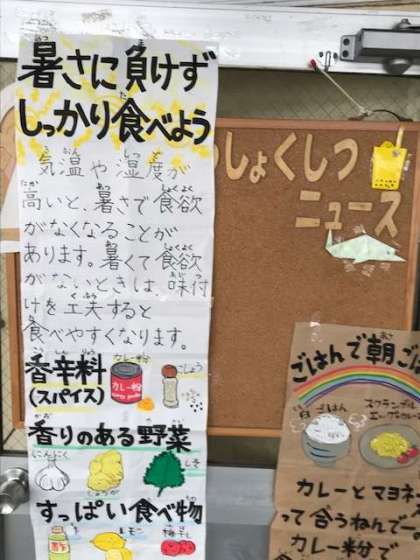 暑さに負けず
しっかり食べよう
気温や湿度が
高いと、暑さで食欲
がなくなることが
あります。暑くて食欲
がないときは、味付
けを工夫すると
食べやすくなります。
香辛料
(スパイス)
カレー粉
カレー粉
こしょう
香りのある野菜
にんにく
しょうが
しそ
すっぱい食べ物
酢
レモン
梅干し
しょくしつ
ニュース
ごはんで朝ご
白ごはん
スクランブル
エッグ
カレーとマヨネ
って合うねんで
カレー粉で